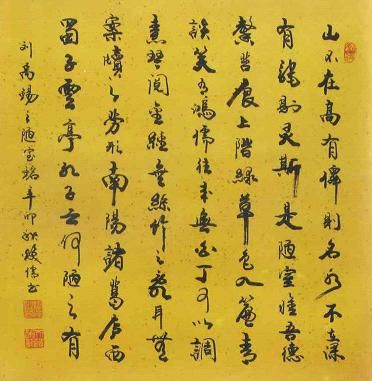 山不在高有僊則名水不在深
有龍則灵斯是陋室惟吾德
馨苔痕上階綠草色入簾青
談笑有鴻儒往來無白丁可以調
素琴閱金經無絲竹之亂耳無
案牘之勞形南陽諸葛廬西
蜀子雲亭孔子云何陋之有
刘禹锡之陋室铭辛卯秋儒书